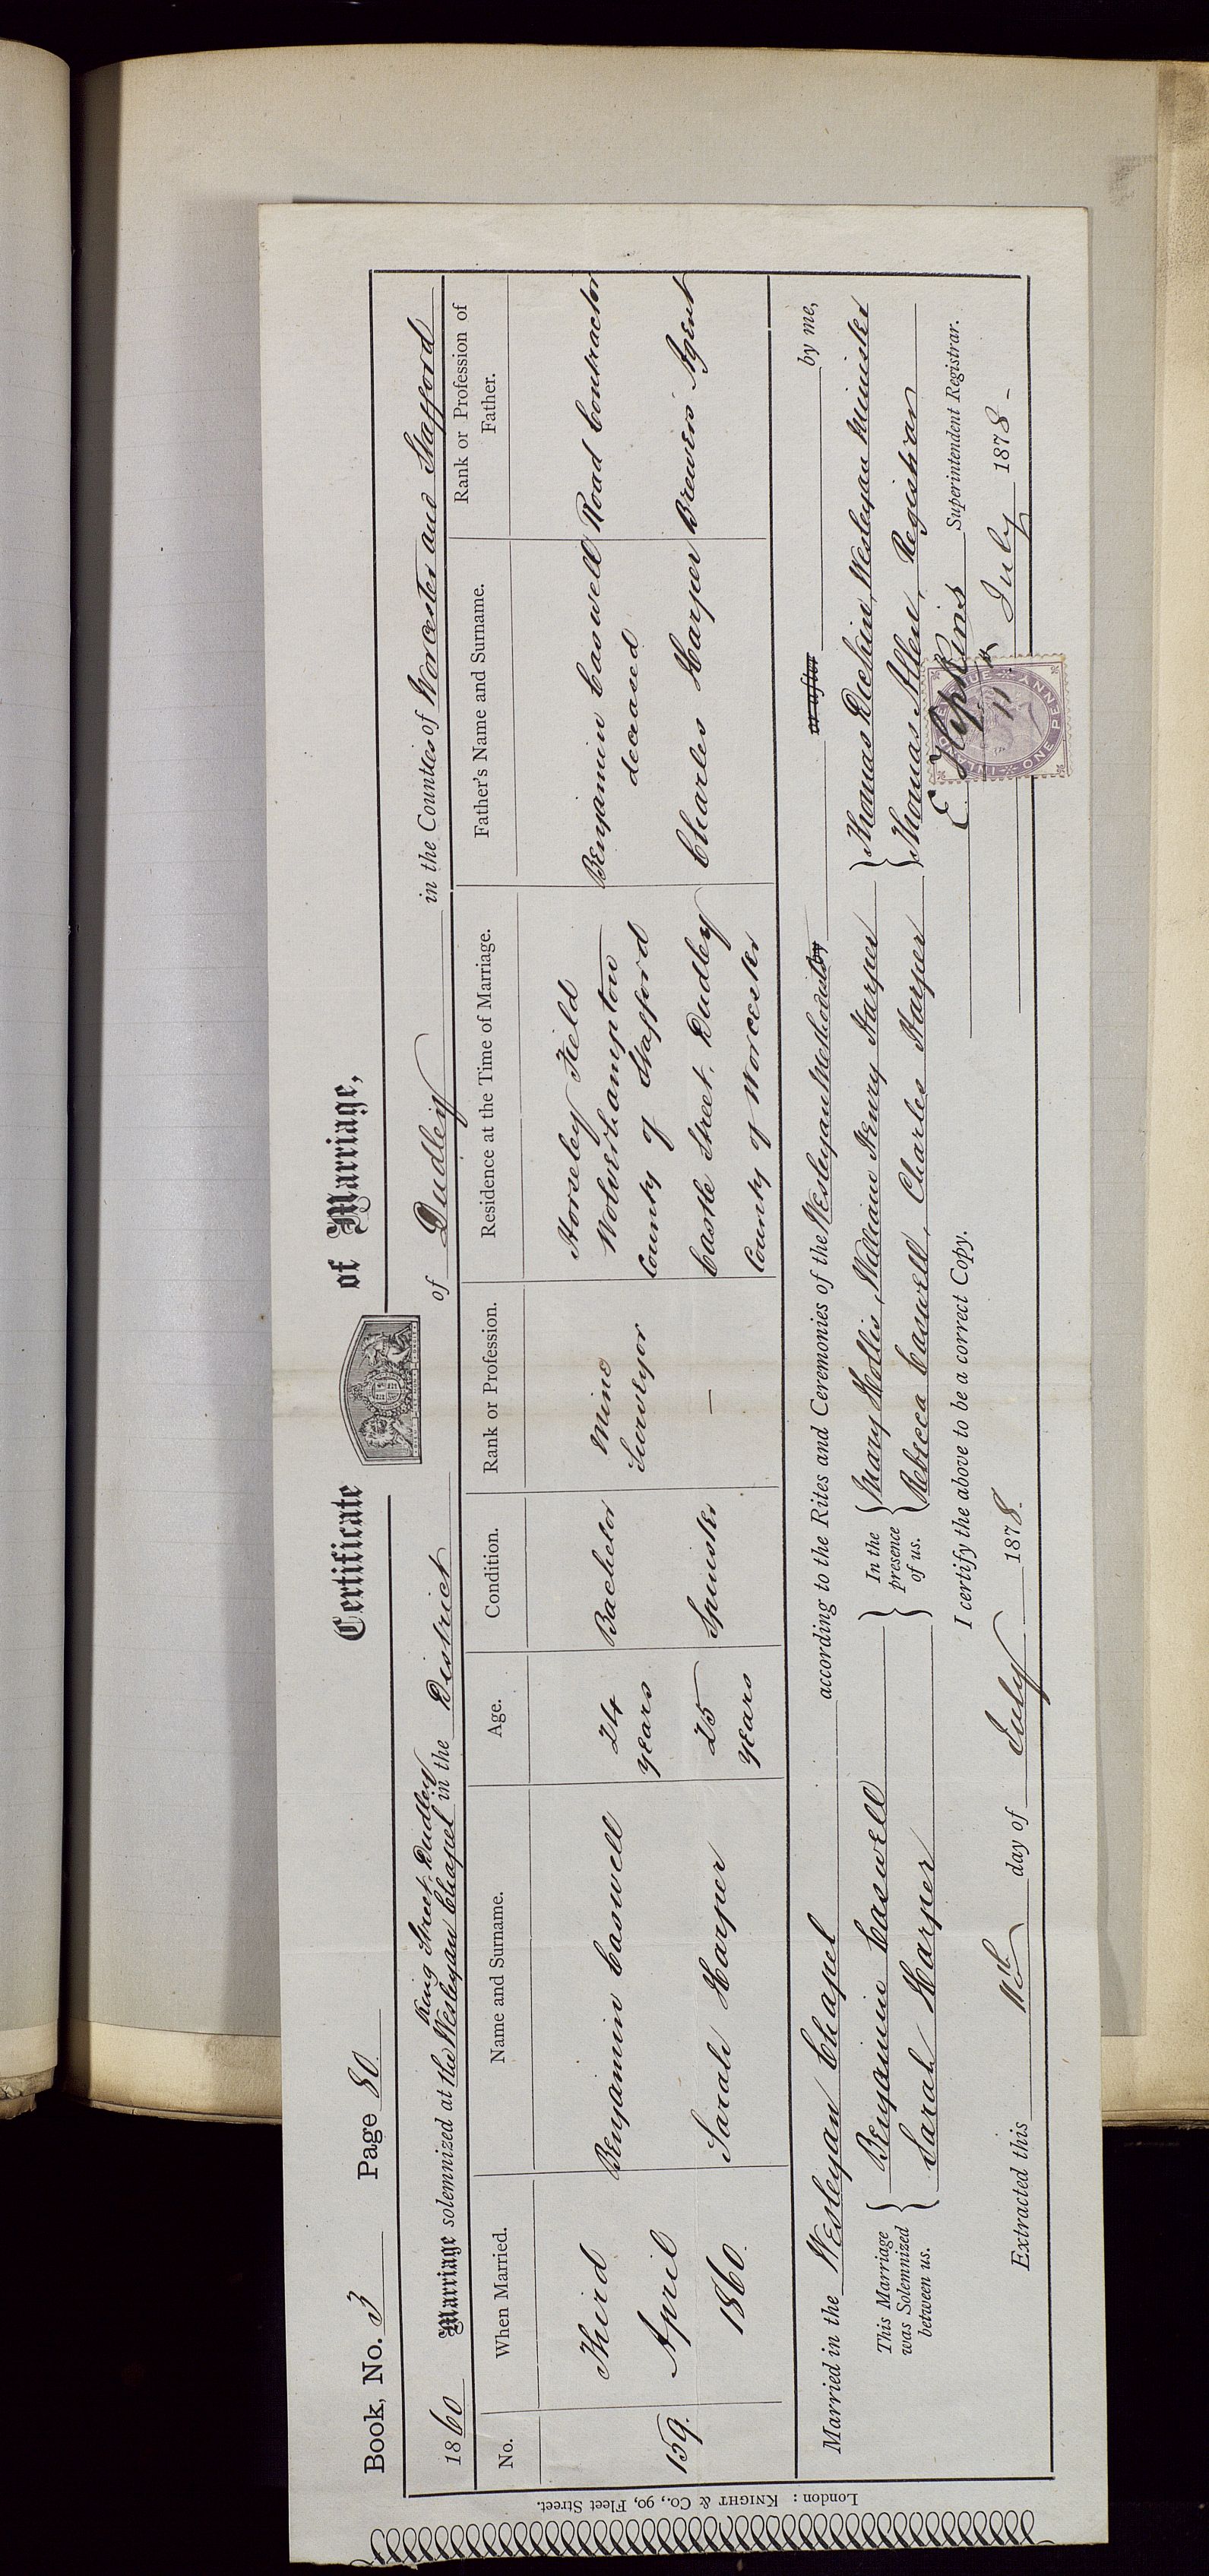 Book, No. 3 Page 80.
Certificate of Marriage,
King Street, Dudley
1860 Marriage solemnized at the Wesleyan Chapel in the District of Dudley in the Counties of Worcester and Stafford
No. When Married. Name and Surname. Age. Condition. Rank or Profession. Residence at the Time of Marriage. Father's Name and Surname. Rank or Profession of Father.
159. Third April 1860.
Benjamin Caswell 24 years Bachelor Mine Surveyor Horseley Field Wolverhampton County of Stafford Benjamin Caswell deceased Road Contractor
Sarah Harper 25 years Spinster — Castle Street, Dudley County of Worcester Charles Harper Brewers Agent
Married in the Wesleyan Chapel according to the Rites and Ceremonies of the Wesleyan Methodists by or after by me,
This Marriage was Solemnized between us. Benjamin Caswell
Sarah Harper
In the presence of us. Mary Hollis, William Henry Harper
Rebecca Caswell, Charles Harper
Thomas Dickin, Wesleyan Minister
Thomas Allen, Registrar
I certify the above to be a correct Copy.
E. Hipkins Superintendent Registrar.
Extracted this 11th day of July 1878.
11 July 1878-
INLAND REVENUE
ONE PENNY
London: KNIGHT & Co., 90, Fleet Street.